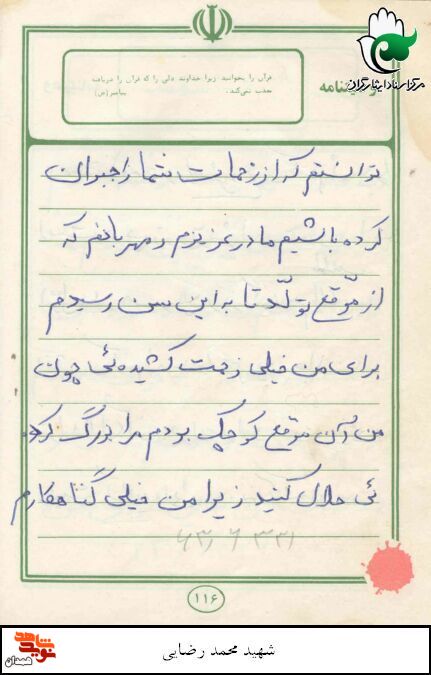 مرکز اسناد ایثارگران
وصیتنامه
قرآن را بخوانید زیرا خداوند دلی را که قرآن را دریافته
عذب نمی‌کند. پیامبر (ص)
توانستم که از زحمات شما را جبران
کرده باشیم مادر عزیزم و مهربانم که
از موقع تولّد تا به این سن رسیدم
برای من خیلی زحمت کشیده‌ئی چون
من آن موقع کوچک بودم مرا بزرگ کرده
ئی حلال کنید زیرا من خیلی گناهکارم
۱۱۶
نوید شاهد
همدان
شهید محمد رضایی